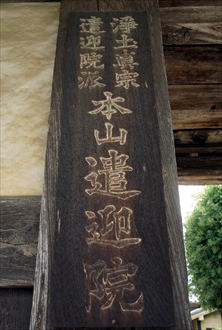 浄土真宗
遣迎院派
本山遣迎院